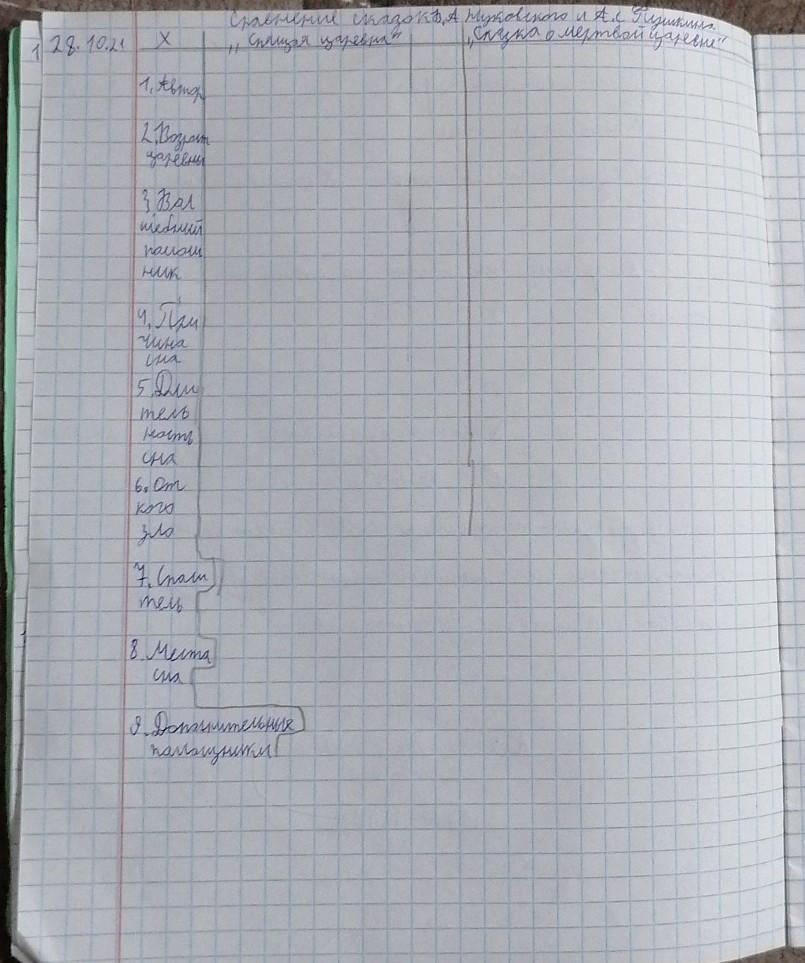 Сравнение сказок В.А Жуковского и А.С Пушкина
1 28.10.21 X „Спящая царевна" „Сказка о мертвой царевне"
1. Автор
2. Возраст
царевны
3. Вол
шебный
помощ
ник
4. При
чина
сна
5. Дли
тель
ность
сна
6. От
кого
зло
7. Спаси
тель
8. Места
сна
9. Дополнительные
помощники